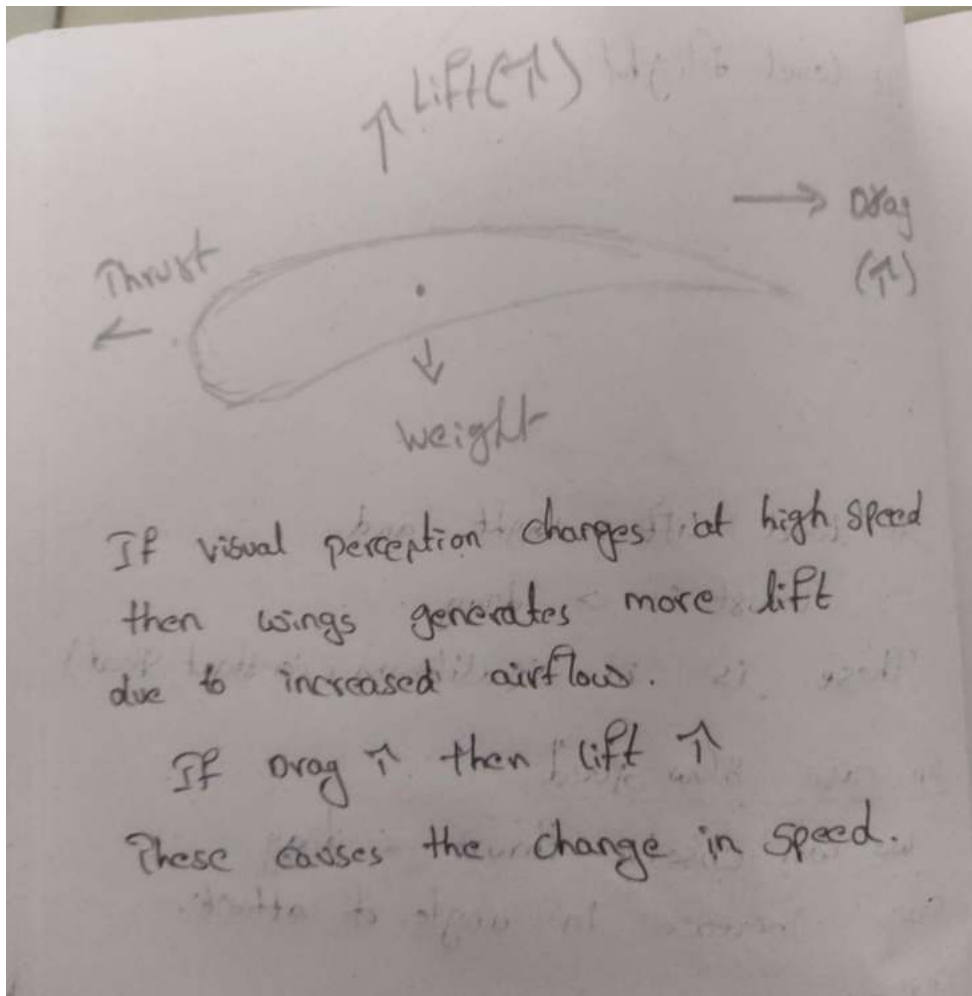 ↑ Lift(↑)
→ Drag
(↑)
Thrust
←
↓
Weight
If visual perception changes at high speed
then wings generates more lift
due to increased airflow.
If Drag ↑ then lift ↑
These causes the change in speed.